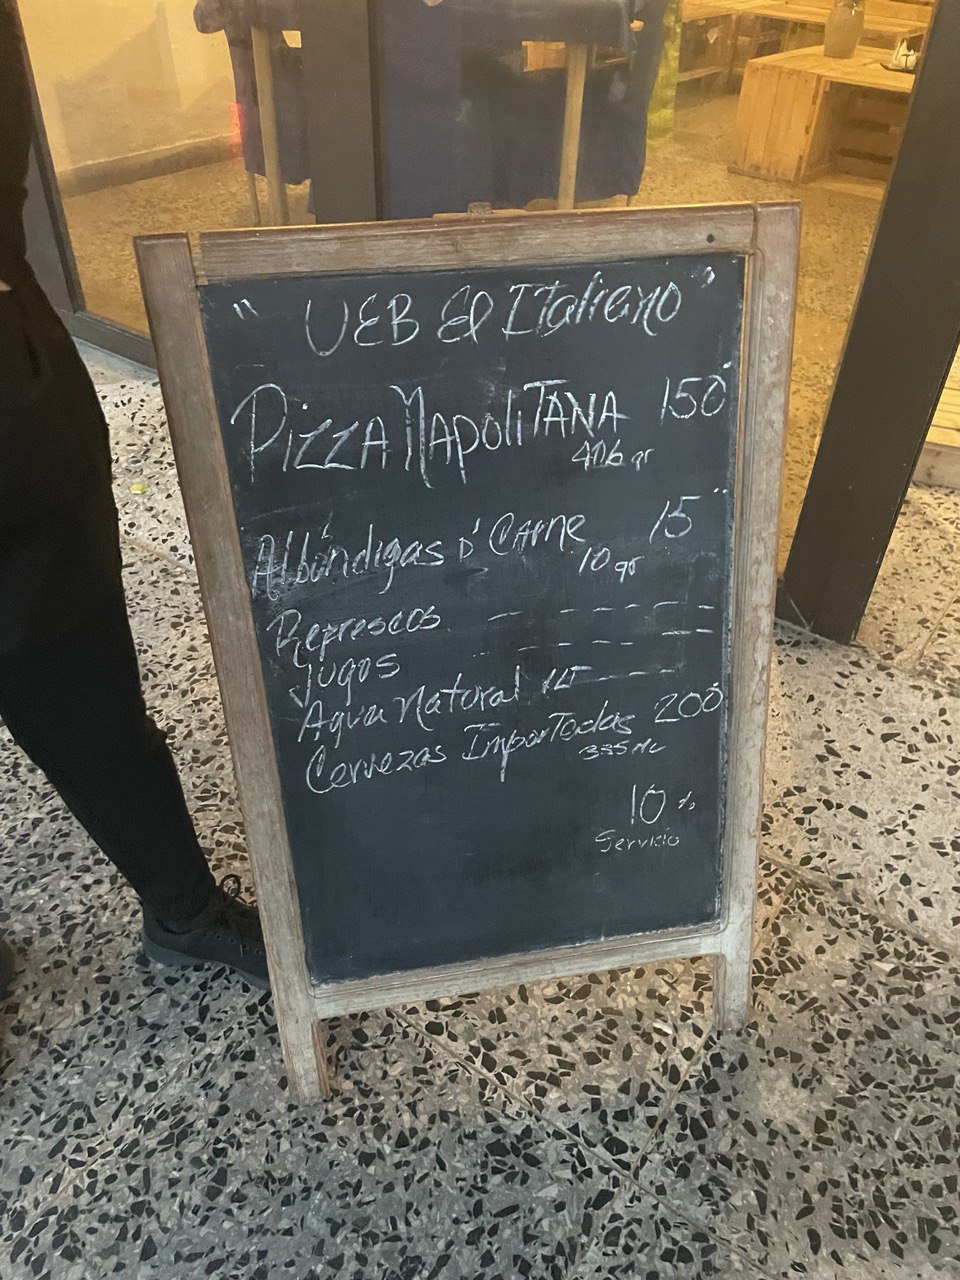 " UEB El Italiano "
PIZZA NAPOLITANA 150
416 gr
Albóndigas D' CARNE 15
10 gr
Refrescos - - - - - -
Jugos - - - - - -
Agua Natural - - -
Cervezas ImporTadas 200
355 ML
10 %
Servicio